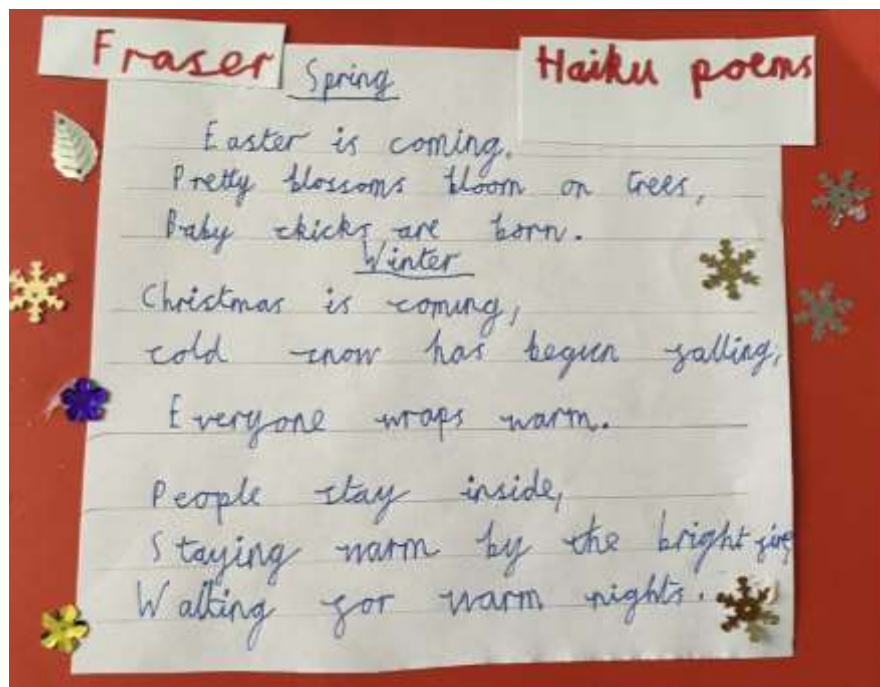 Fraser
Haiku poems
Spring
Easter is coming.
Pretty blossoms bloom on trees,
Baby chicks are born.
Winter
Christmas is coming,
cold snow has begun falling,
Everyone wraps warm.
People stay inside,
Staying warm by the bright fire
Waiting for warm nights.